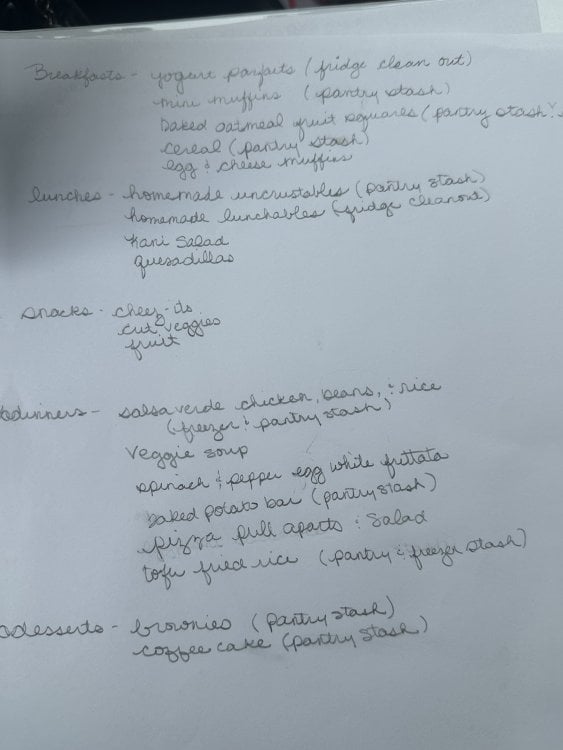 Breakfasts - yogurt parfaits (fridge clean out)
mini muffins (pantry stash)
baked oatmeal fruit squares (pantry stash)
cereal (pantry stash)
egg & cheese muffins
lunches - homemade uncrustables (pantry stash)
homemade lunchables (fridge cleanout)
kani salad
quesadillas
snacks - cheez-its
cut veggies
fruit
dinners - salsa verde chicken, beans, & rice
(freezer & pantry stash)
veggie soup
spinach & pepper egg white frittata
baked potato bar (pantry stash)
pizza pull aparts & salad
tofu fried rice (pantry & freezer stash)
desserts - brownies (pantry stash)
coffee cake (pantry stash)